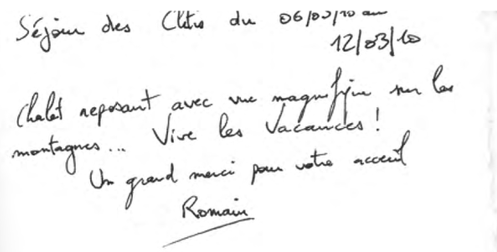 Séjour des Chtis du 06/03/10 au
12/03/10
Chalet reposant avec vue magnifique sur les
montagnes... Vive les Vacances !
Un grand merci pour votre acceuil
Romain